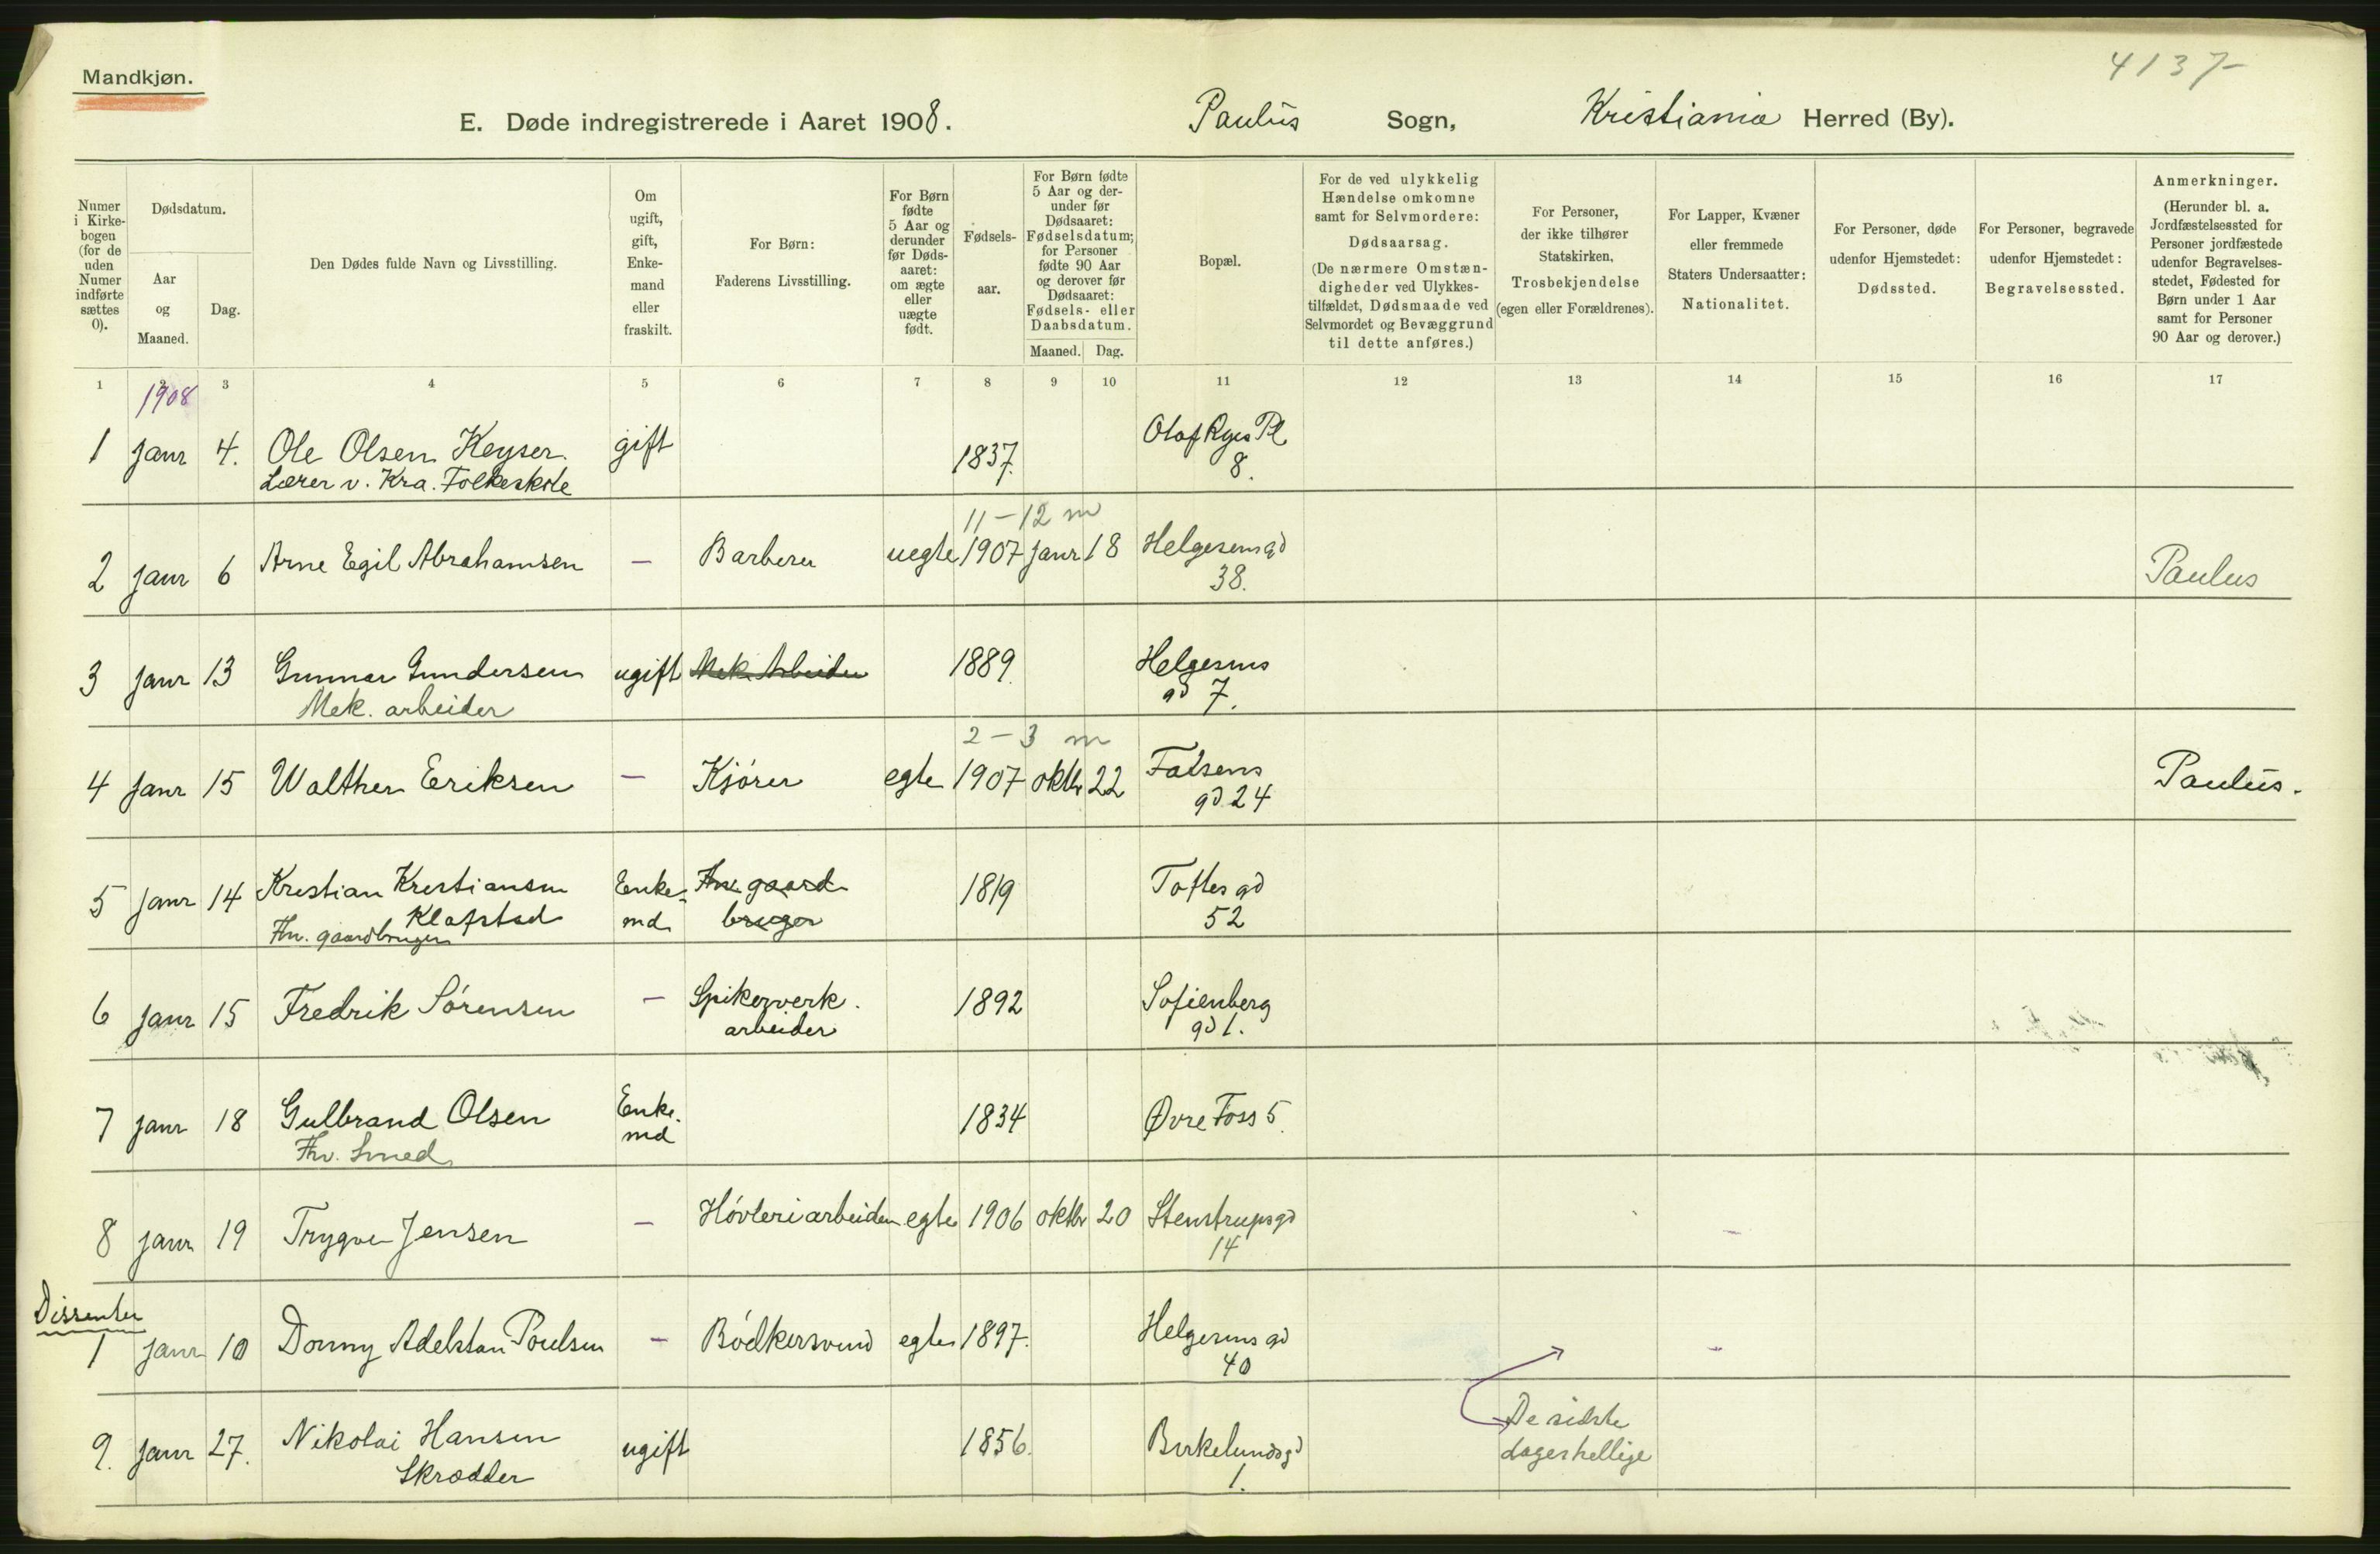 Mandkjøn.
4137-
E. Døde indregistrerede i Aaret 1908.
Paulus Sogn, Kristiania Herred (By).
Numer
i Kirke-
bogen
(for de
uden
Numer
indførte
sættes
0).
Dødsdatum.
Aar
og
Maaned.
Dag.
Den Dødes fulde Navn og Livsstilling.
Om
ugift,
gift,
Enke-
mand
eller
fraskilt.
For Børn:
Faderens Livsstilling.
For Børn
fødte
5 Aar og
derunder
før Døds-
aaret:
om ægte
eller
uægte
født.
Fødsels-
aar.
For Børn fødte
5 Aar og der-
under før
Dødsaaret:
Fødselsdatum;
for Personer
fødte 90 Aar
og derover før
Dødsaaret:
Fødsels- eller
Daabsdatum.
Maaned. Dag.
Bopæl.
For de ved ulykkelig
Hændelse omkomne
samt for Selvmordere:
Dødsaarsag.
(De nærmere Omstæn-
digheder ved Ulykkes-
tilfældet, Dødsmaade ved
Selvmordet og Bevæggrund
til dette anføres.)
For Personer,
der ikke tilhører
Statskirken,
Trosbekjendelse
(egen eller Forældrenes).
For Lapper, Kvæner
eller fremmede
Staters Undersaatter:
Nationalitet.
For Personer, døde
udenfor Hjemstedet:
Dødssted.
For Personer, begravede
udenfor Hjemstedet:
Begravelsessted.
Anmerkninger.
(Herunder bl. a.
Jordfæstelsessted for
Personer jordfæstede
udenfor Begravelses-
stedet, Fødested for
Børn under 1 Aar
samt for Personer
90 Aar og derover.)
1 2 3 4 5 6 7 8 9 10 11 12 13 14 15 16 17
1908
1 Janr 4. Ole Olsen Keyser. gift 1837. Olaf Ryes Pl
Lærer v. Kra. Folkeskole 8.
11-12 m
2 Janr 6 Arne Egil Abrahamsen — Barberer uegte 1907 Janr 18 Helgesensgd Paulus
38.
3 Janr 13 Gunnar Gundersen ugift Mek. Arbeider 1889. Helgesens
Mek. arbeider gd 7.
2-3 m
4 Janr 15 Walther Eriksen — Kjører egte 1907 oktbr 22 Falsens Paulus.
gd 24
5 Janr 14 Kristian Kristiansen Enke- Fhv. gaard 1819 Toftes gd
Klafstad md bruger 52
Fhv. gaardbruger
6 Janr 15 Fredrik Sørensen — Spikerverk. 1892 Sofienberg
arbeider gd 1.
7 Janr 18 Gulbrand Olsen Enke. 1834 Øvre Foss 5.
Fhv. Smed md
8 Janr 19 Trygve Jensen — Høvleriarbeider egte 1906 oktbr 20 Stenstrupsgd
14
Dissenter
1 Janr 10 Donny Adelstan Poulsen — Bødkersvend egte 1897. Helgesens gd
40
9. Janr 27. Nikolai Hansen ugift 1856. Birkelundsgd De sidste
Skrædder 1. dages hellige